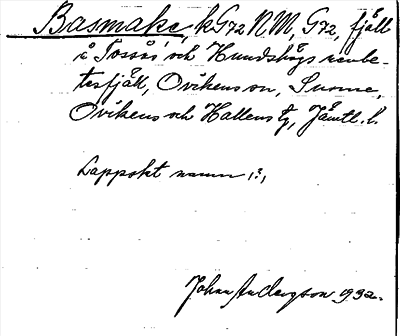 Basmake, k G72 NM, G72, fjäll
i Tossås och Hundshögs renbe-
tesfjäll, Ovikens sn, Sunne,
Ovikens och Hallens tg, Jämtl. l.
Lappskt namn (?)
Johan Andersson 1932.